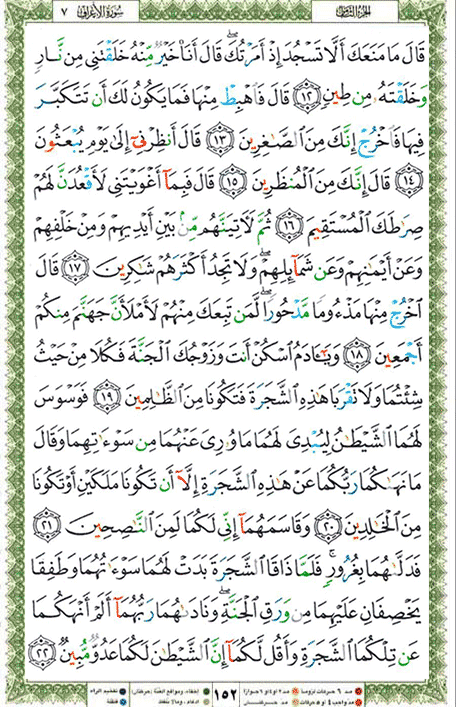 الجزء الثامن
سورة الأعراف
٧
قَالَ مَا مَنَعَكَ أَلَّا تَسْجُدَ إِذْ أَمَرْتُكَ ۖ قَالَ أَنَا۠ خَيْرٌ مِّنْهُ خَلَقْتَنِى مِن نَّارٍ
وَخَلَقْتَهُۥ مِن طِينٍ ﴿١٢﴾ قَالَ فَٱهْبِطْ مِنْهَا فَمَا يَكُونُ لَكَ أَن تَتَكَبَّرَ
فِيهَا فَٱخْرُجْ إِنَّكَ مِنَ ٱلصَّـٰغِرِينَ ﴿١٣﴾ قَالَ أَنظِرْنِىٓ إِلَىٰ يَوْمِ يُبْعَثُونَ
﴿١٤﴾ قَالَ إِنَّكَ مِنَ ٱلْمُنظَرِينَ ﴿١٥﴾ قَالَ فَبِمَآ أَغْوَيْتَنِى لَأَقْعُدَنَّ لَهُمْ
صِرَٰطَكَ ٱلْمُسْتَقِيمَ ﴿١٦﴾ ثُمَّ لَـَٔاتِيَنَّهُم مِّنۢ بَيْنِ أَيْدِيهِمْ وَمِنْ خَلْفِهِمْ
وَعَنْ أَيْمَـٰنِهِمْ وَعَن شَمَآئِلِهِمْ ۖ وَلَا تَجِدُ أَكْثَرَهُمْ شَـٰكِرِينَ ﴿١٧﴾ قَالَ
ٱخْرُجْ مِنْهَا مَذْءُومًا مَّدْحُورًا ۖ لَّمَن تَبِعَكَ مِنْهُمْ لَأَمْلَأَنَّ جَهَنَّمَ مِنكُمْ
أَجْمَعِينَ ﴿١٨﴾ وَيَـٰٓـَٔادَمُ ٱسْكُنْ أَنتَ وَزَوْجُكَ ٱلْجَنَّةَ فَكُلَا مِنْ حَيْثُ
شِئْتُمَا وَلَا تَقْرَبَا هَـٰذِهِ ٱلشَّجَرَةَ فَتَكُونَا مِنَ ٱلظَّـٰلِمِينَ ﴿١٩﴾ فَوَسْوَسَ
لَهُمَا ٱلشَّيْطَـٰنُ لِيُبْدِىَ لَهُمَا مَا وُۥرِىَ عَنْهُمَا مِن سَوْءَٰتِهِمَا وَقَالَ
مَا نَهَىٰكُمَا رَبُّكُمَا عَنْ هَـٰذِهِ ٱلشَّجَرَةِ إِلَّآ أَن تَكُونَا مَلَكَيْنِ أَوْ تَكُونَا
مِنَ ٱلْخَـٰلِدِينَ ﴿٢٠﴾ وَقَاسَمَهُمَآ إِنِّى لَكُمَا لَمِنَ ٱلنَّـٰصِحِينَ ﴿٢١﴾
فَدَلَّىٰهُمَا بِغُرُورٍ ۚ فَلَمَّا ذَاقَا ٱلشَّجَرَةَ بَدَتْ لَهُمَا سَوْءَٰتُهُمَا وَطَفِقَا
يَخْصِفَانِ عَلَيْهِمَا مِن وَرَقِ ٱلْجَنَّةِ ۖ وَنَادَىٰهُمَا رَبُّهُمَآ أَلَمْ أَنْهَكُمَا
عَن تِلْكُمَا ٱلشَّجَرَةِ وَأَقُل لَّكُمَآ إِنَّ ٱلشَّيْطَـٰنَ لَكُمَا عَدُوٌّ مُّبِينٌ ﴿٢٢﴾
مد ٦ حركات لزوما
مد ٢ او ٤ او ٦ جوازا
مد واجب ٤ او ٥ حركات
مد حركتان
١٥٢
إخفاء، ومواقع الغنّة (حركتان)
ادغام، وما لا يلفظ
تفخيم الراء
قلقلة